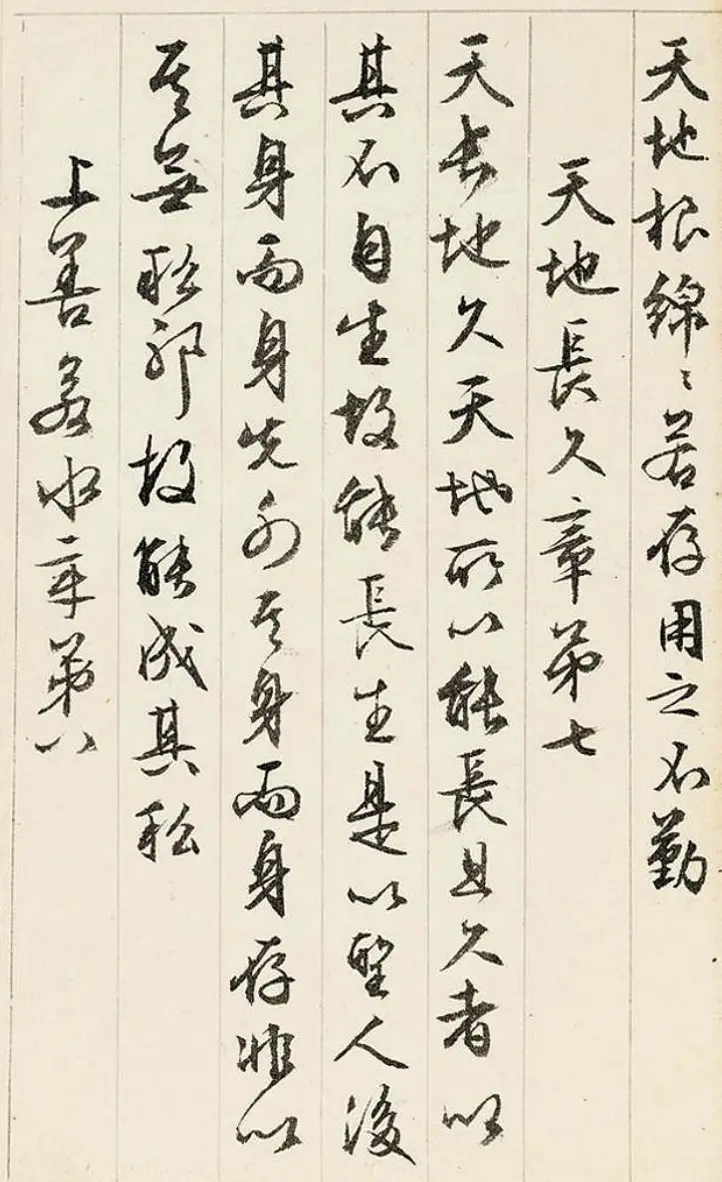 天地根綿〻若存用之不勤
天地長久章第七
天長地久天地所以能長且久者以
其不自生故能長生是以聖人後
其身而身先外其身而身存非以
其無私耶故能成其私
上善若水章第八